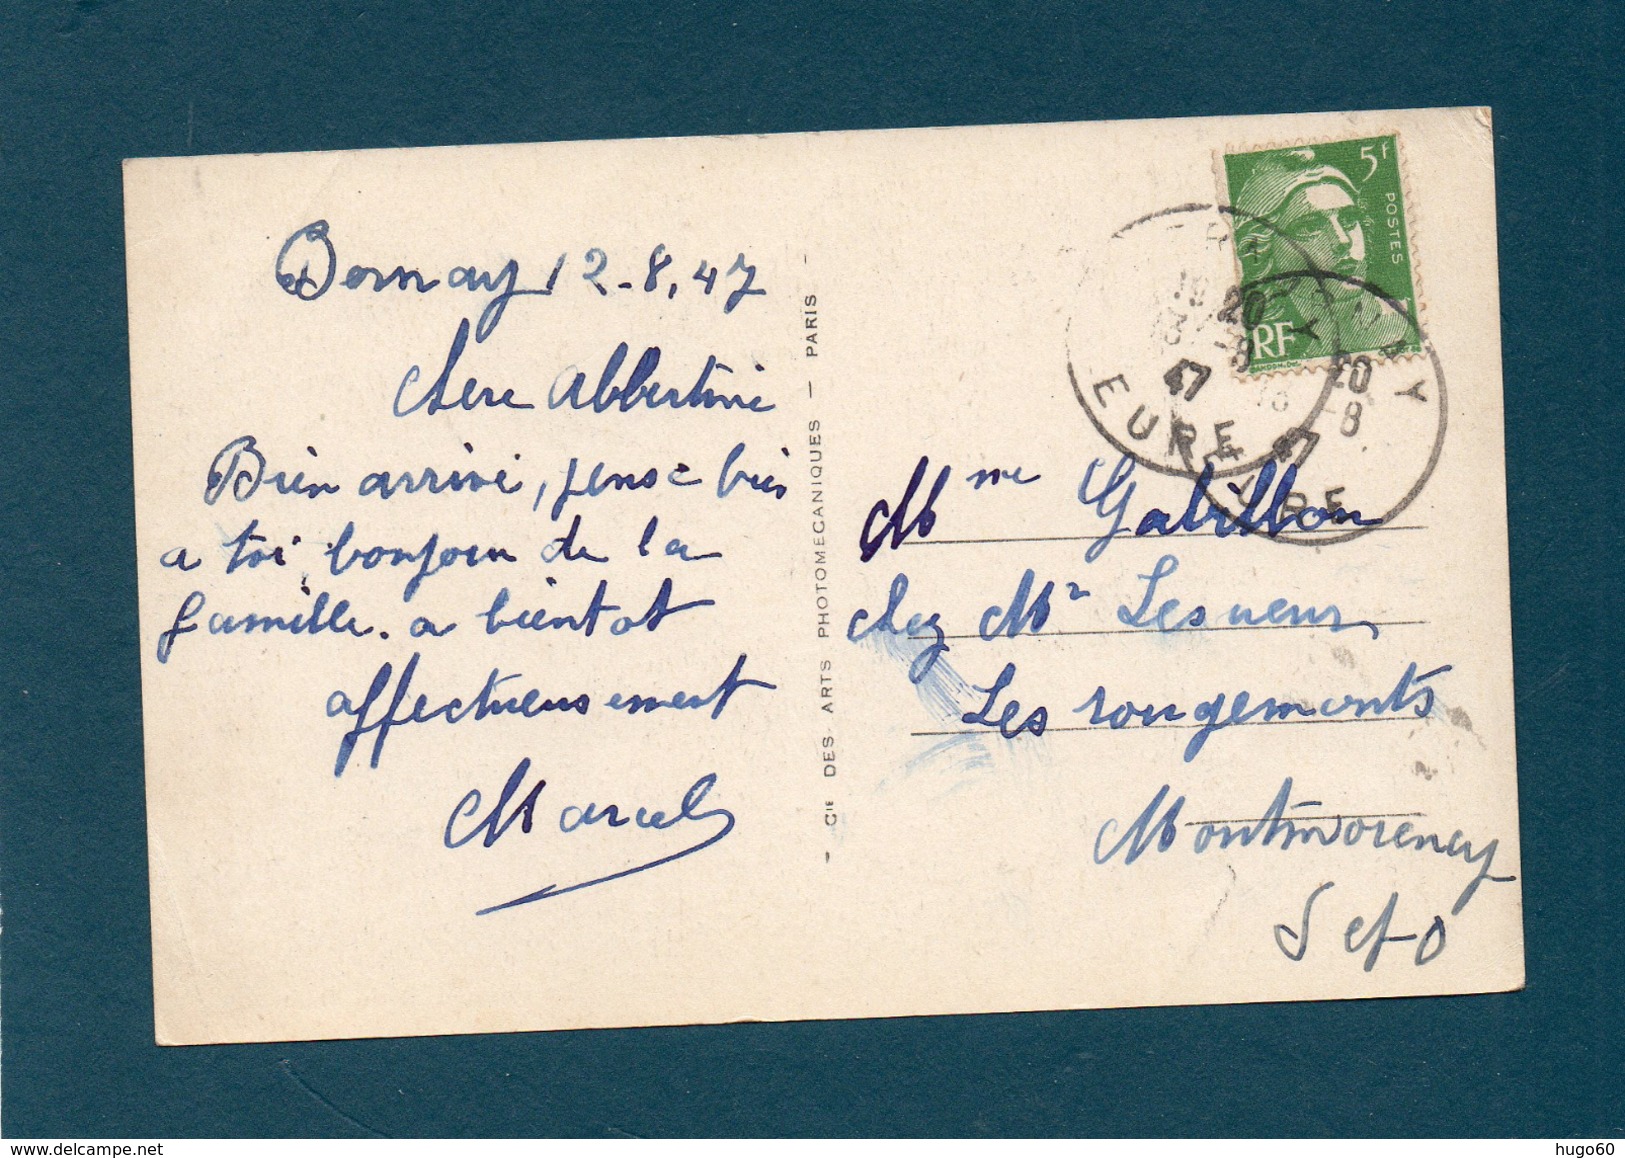 Bernay 12-8.47
chere Albertine
Bien arrivé, pense bien
a toi bonjour de la
famille. a bientot
affectueusement
Marcel
- CIE DES ARTS PHOTOMECANIQUES - PARIS -
5f
POSTES
RF
20
13 -8
47
EURE
BERNAY
20
13 -8
47
EURE
Mme Gabillon
chez Mr Lesueur
Les rougemonts
Montmorency
S et O
hugo60